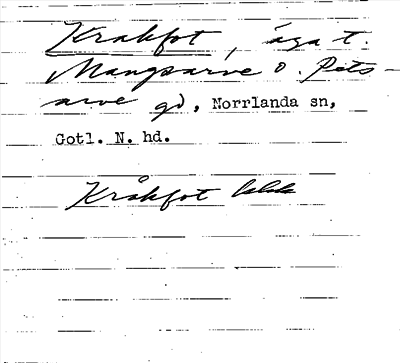 Krakfot, äga t.
Mangsarve o. Pets-
arve gd, Norrlanda sn,
Gotl. N. hd.
Kråkfot